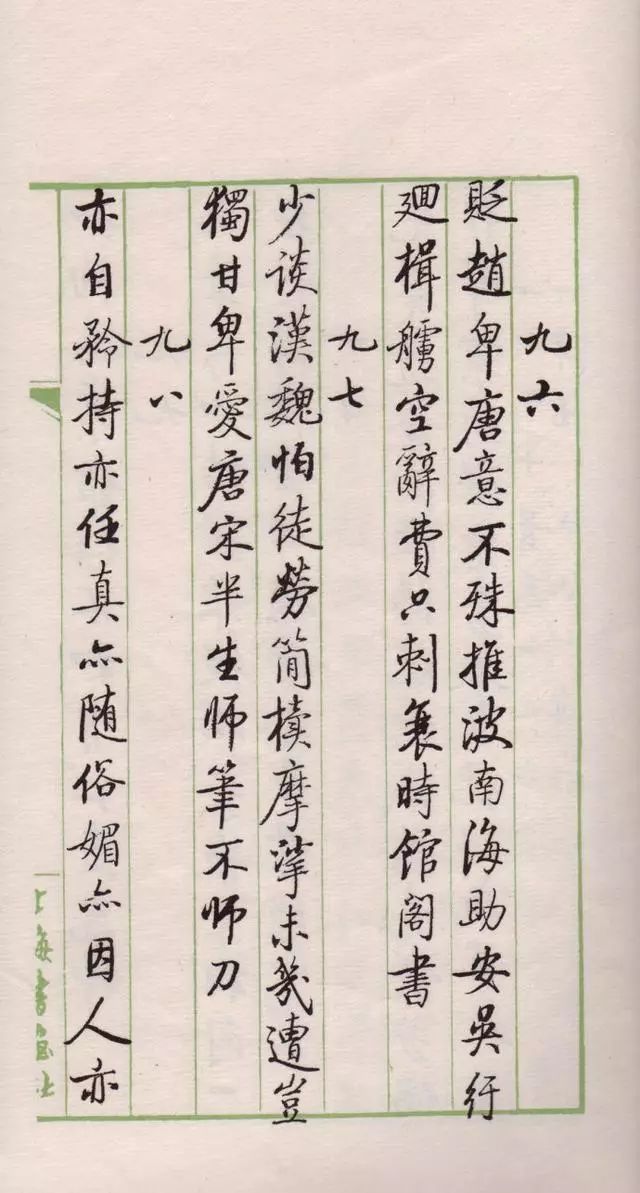 九六
貶趙卑唐意不殊推波南海助安吳紆
廻楫艣空辭費只刺衰時館閣書
九七
少谈漢魏怕徒勞简牘摩挲未幾遭豈
獨甘卑愛唐宋半生师筆不师刀
九八
亦自矜持亦任真亦随俗媚亦因人亦
上海書畫社